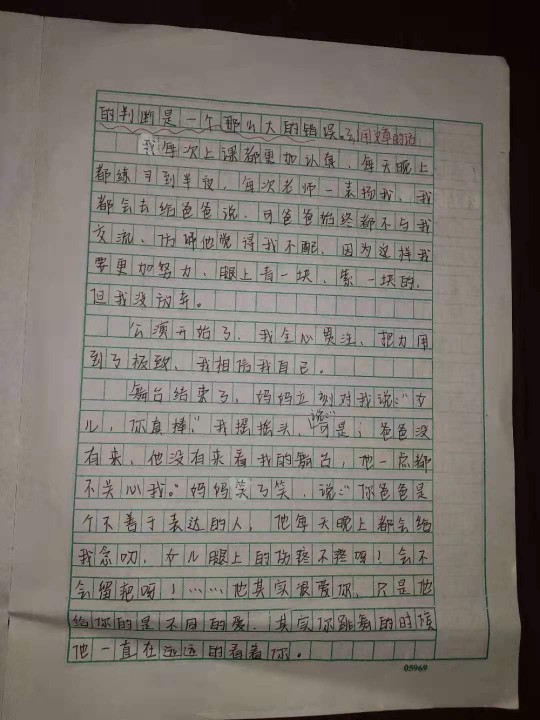 的判断是一个那么大的错误。
我每次上课都更加认真，每天晚上
都练习到半夜，每次老师一表扬我，我
都会去给爸爸说，可爸爸始终都不与我
交流，仿佛他觉得我不配，因为这样我
要更加努力，腿上青一块，紫一块的，
但我没认车。
公演开始了，我全心贯注，把力用
到了极致，我相信我自己。
舞台结束了，妈妈立刻对我说：“女
儿，你真棒，”我摇摇头，说：“可是，爸爸没
有来，他没有来看我的舞台，他一点都
不关心我。”妈妈笑了笑，说：“你爸爸是
个不善于表达的人，他每天晚上都会给
我念叨，女儿腿上的伤疼不疼呀！会不
会留疤呀！……他其实很爱你，只是他
给你的是不同的爱，其实你跳舞的时候
他一直在远远的看着你。
05969